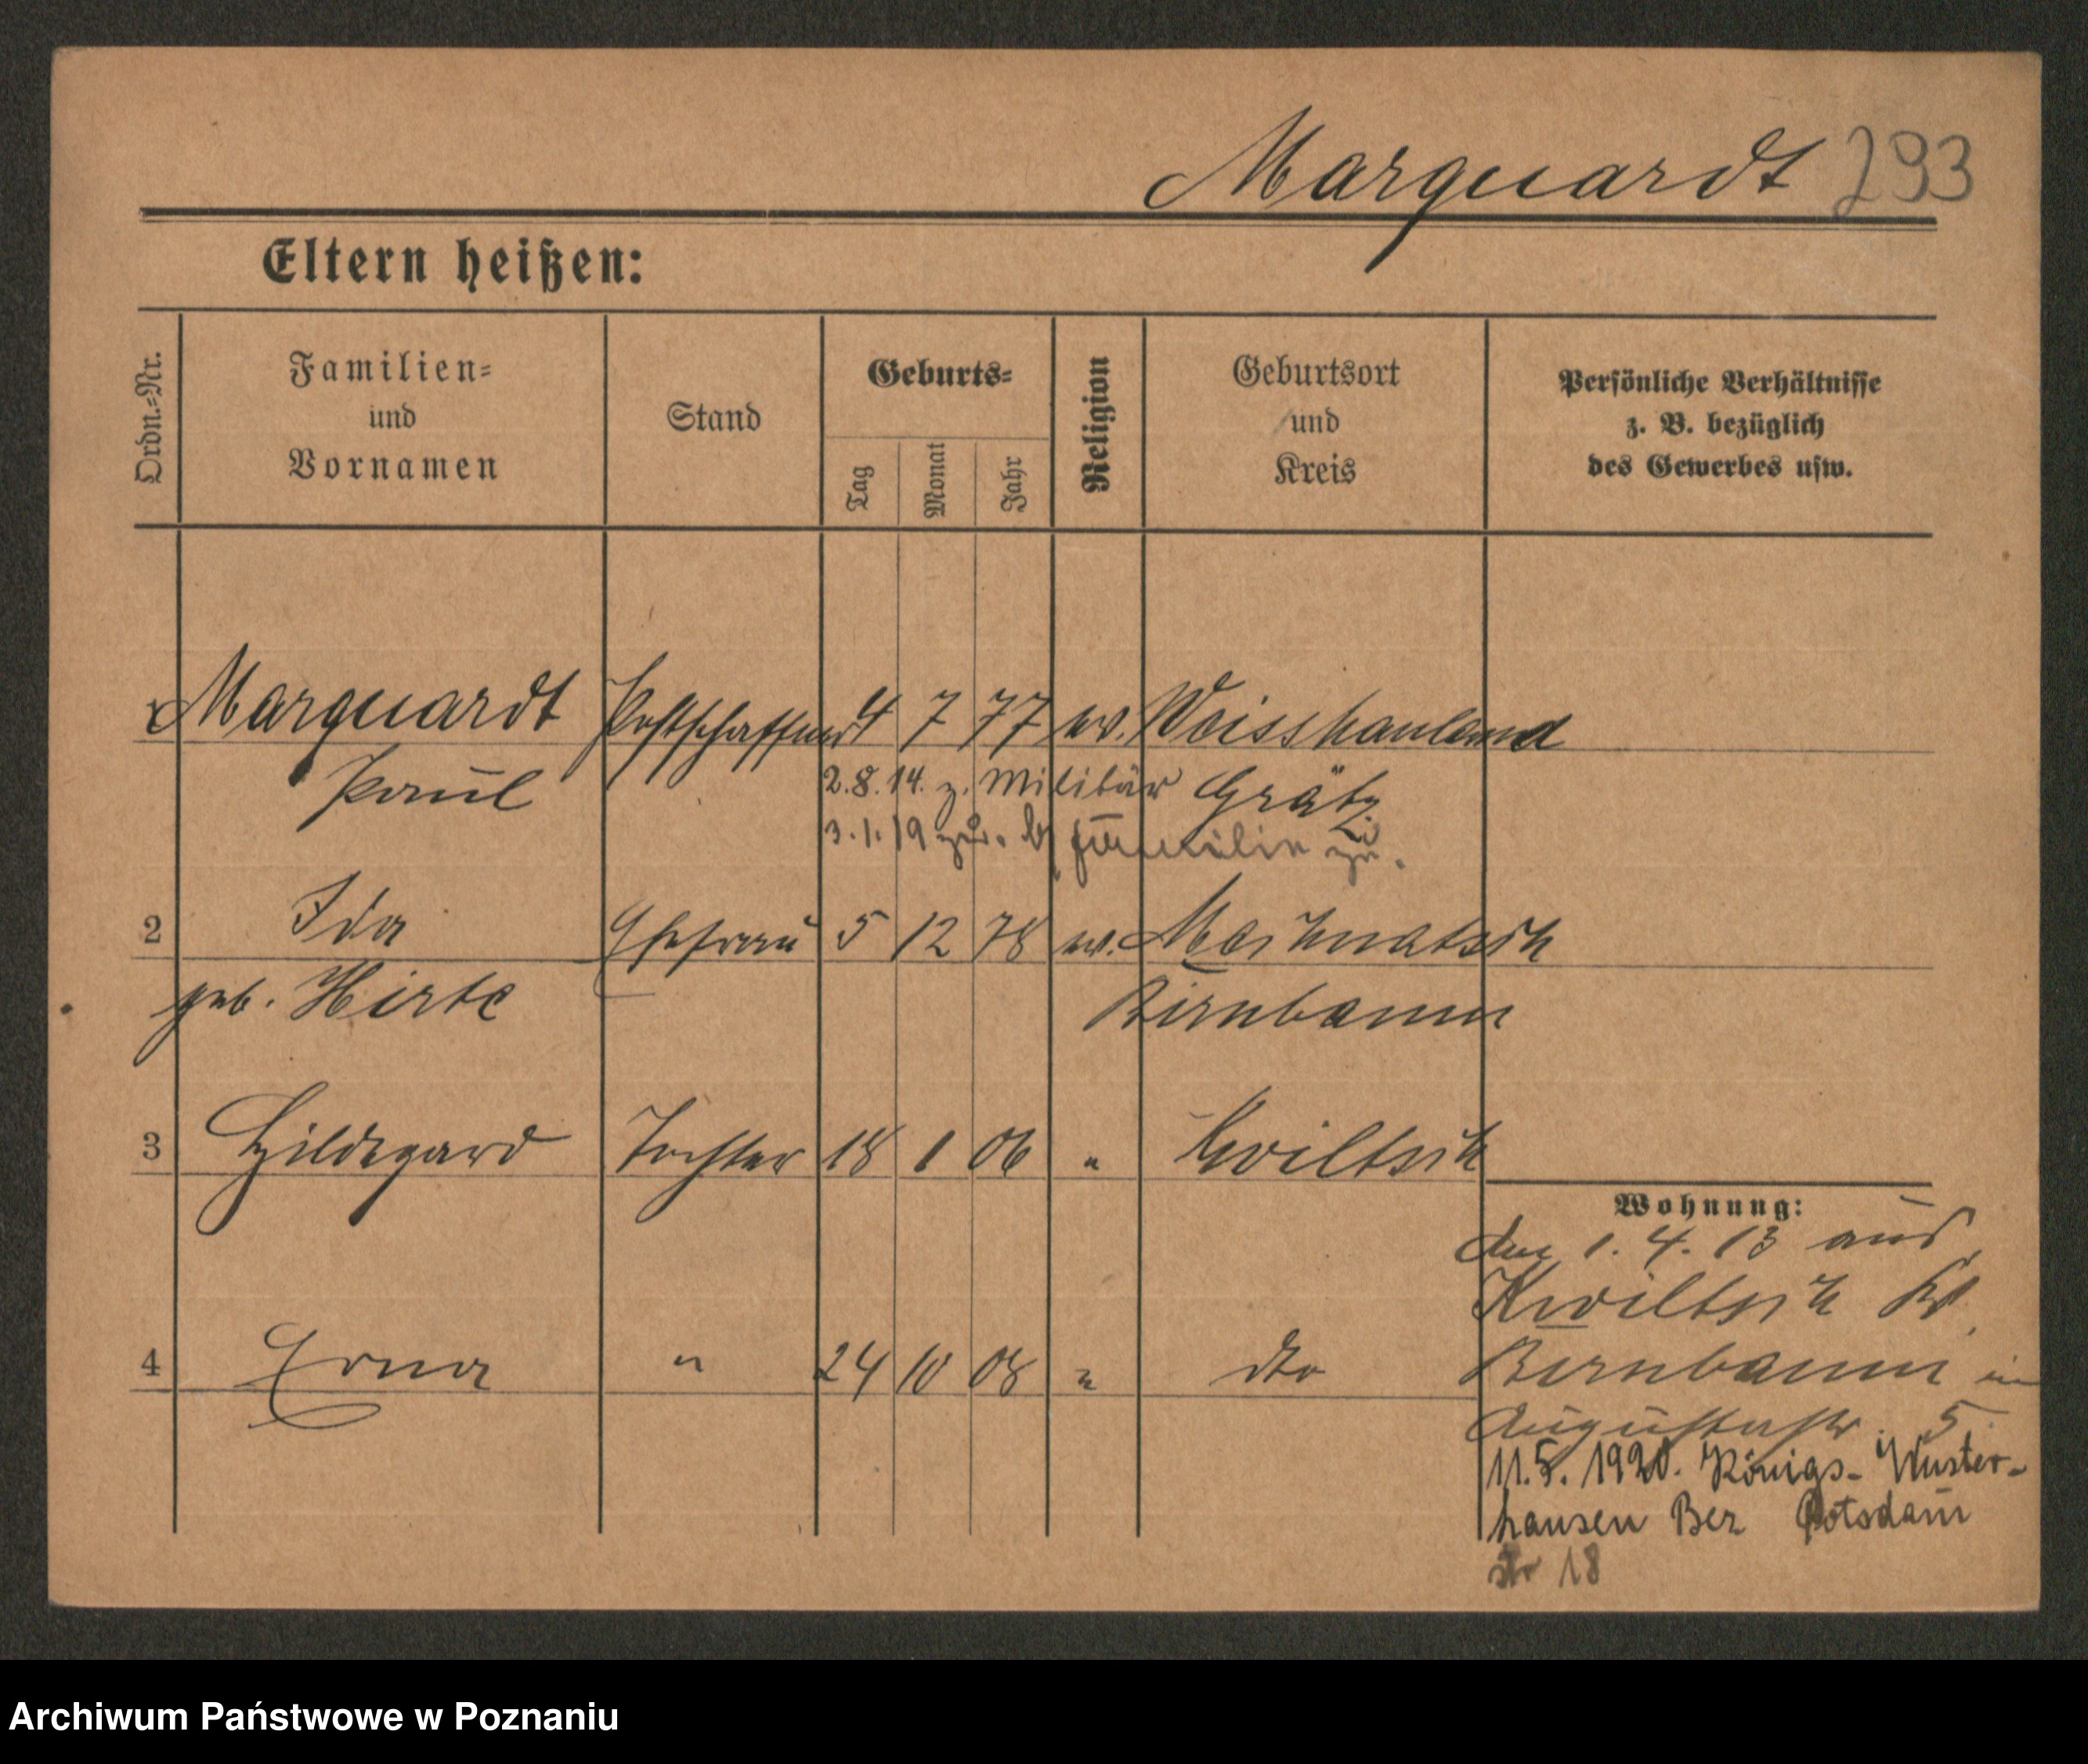 Marquardt 293
Eltern heißen:
Ordn.=Nr.
Familien=
und
Vornamen
Stand
Geburts=
Tag
Monat
Jahr
Religion
Geburtsort
und
Kreis
Persönliche Verhältnisse
z. B. bezüglich
des Gewerbes usw.
Marquardt Postschaffner 4 7 77 ev. Weisshauland
Paul 2.8.14. z. Militär Grätz
3.1.19 zur. Familie zu.
2 Ida Ehefrau 5 12 78 ev.
geb. Hirte Birnbaum
3 Hildegard Tochter 18 1 06 " Kwiltsch
4 Erna " 24 10 08 " dto
Wohnung:
1. 4. 13 aus
Kwiltsch Kr.
Birnbaum in
Augustastr. 5.
11.5. 1920. Königs-Wuster-
hausen Bez Potsdam
str 18
Archiwum Państwowe w Poznaniu